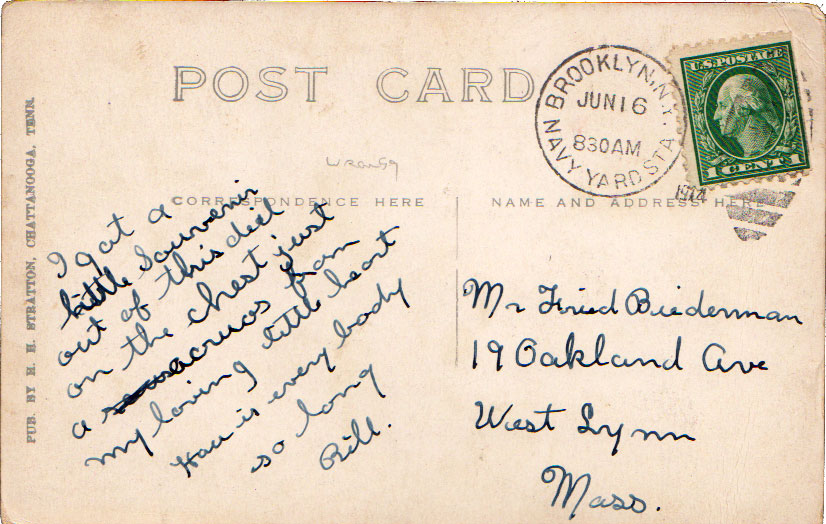 POST CARD
CORRESPONDENCE HERE
NAME AND ADDRESS HERE
PUB. BY H. H. STRATTON, CHATTANOOGA, TENN.
BROOKLYN, N.Y.
JUN 16
830AM
1914
NAVY YARD STA.
U.S. POSTAGE
1 CENT 1
I got a
little Souvenir
out of this deal
on the chest just
a acruos from
my loving little heart
How is every body
so long
Bill.
Mr Fried Biederman
19 Oakland Ave
West Lynn
Mass.